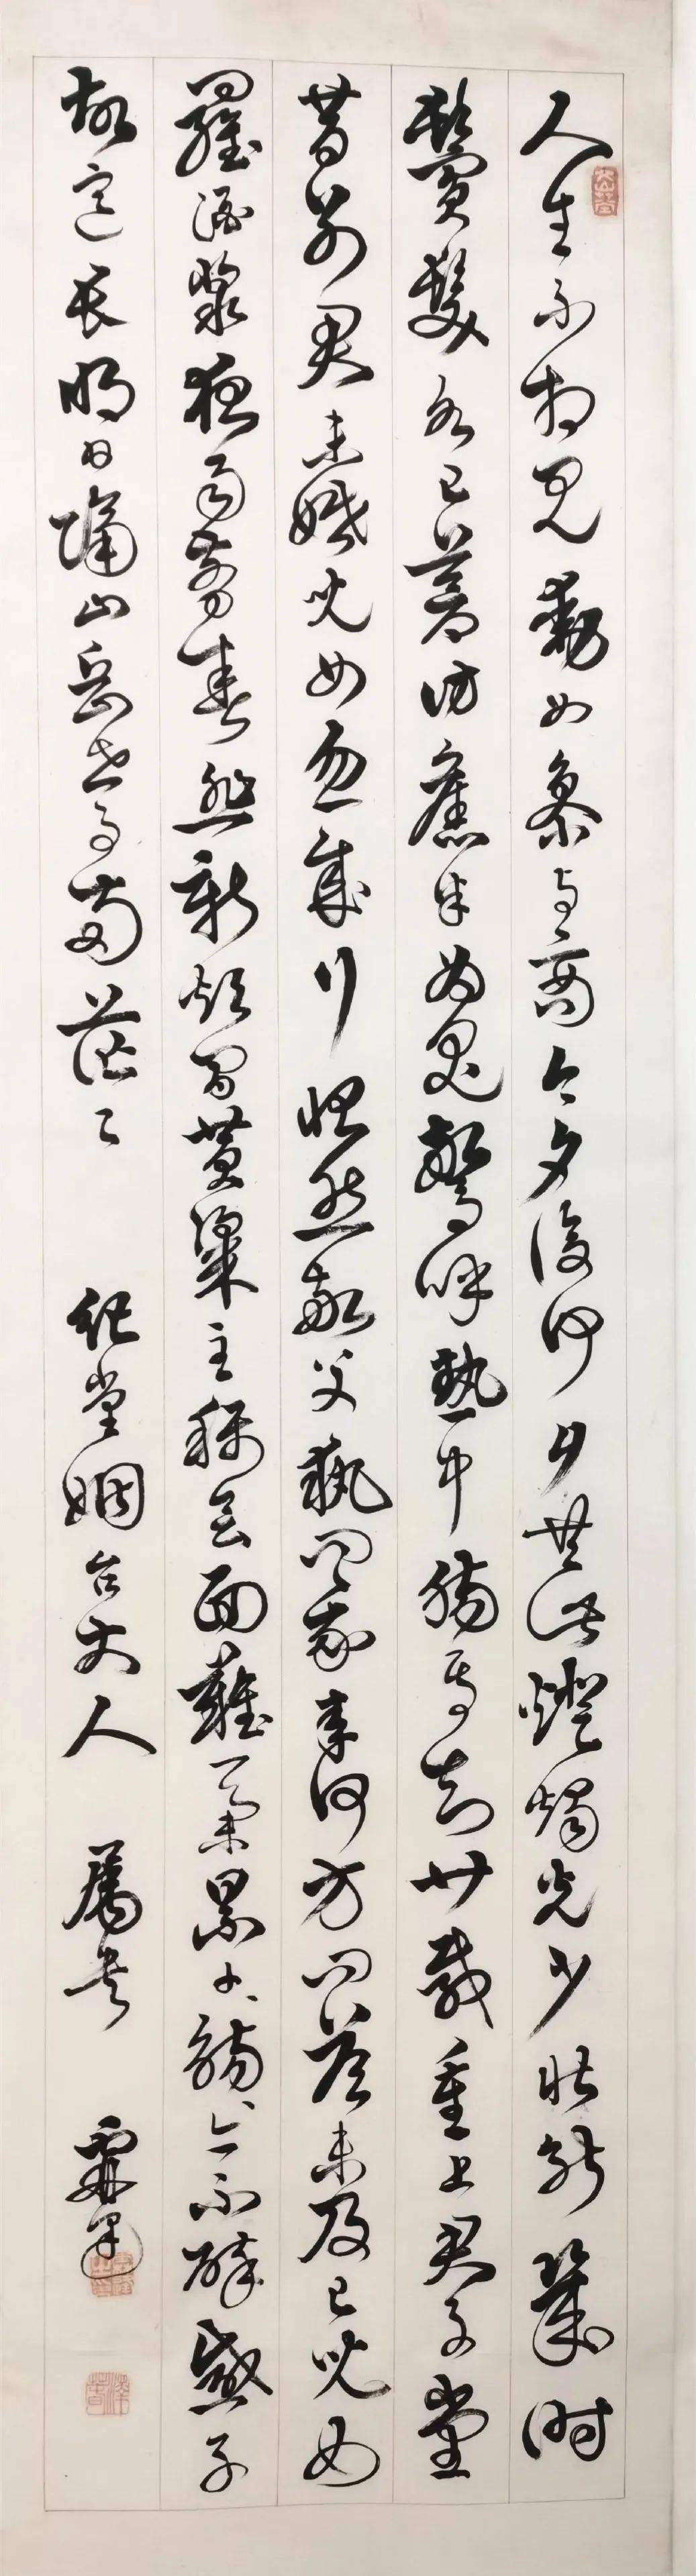 人生不相見動如參與商今夕復何夕共此燈燭光少壯能幾時
鬢髮各已蒼訪舊半為鬼驚呼熱中腸焉知廿載重上君子堂
昔別君未婚兒女忽成行怡然敬父執問我來何方問答未及已兒女
羅酒漿夜雨剪春韭新炊間黃粱主稱會面難一舉累十、觴、亦不醉感子
故意長明日隔山岳世事兩茫〻 紀堂姻台大人 屬書